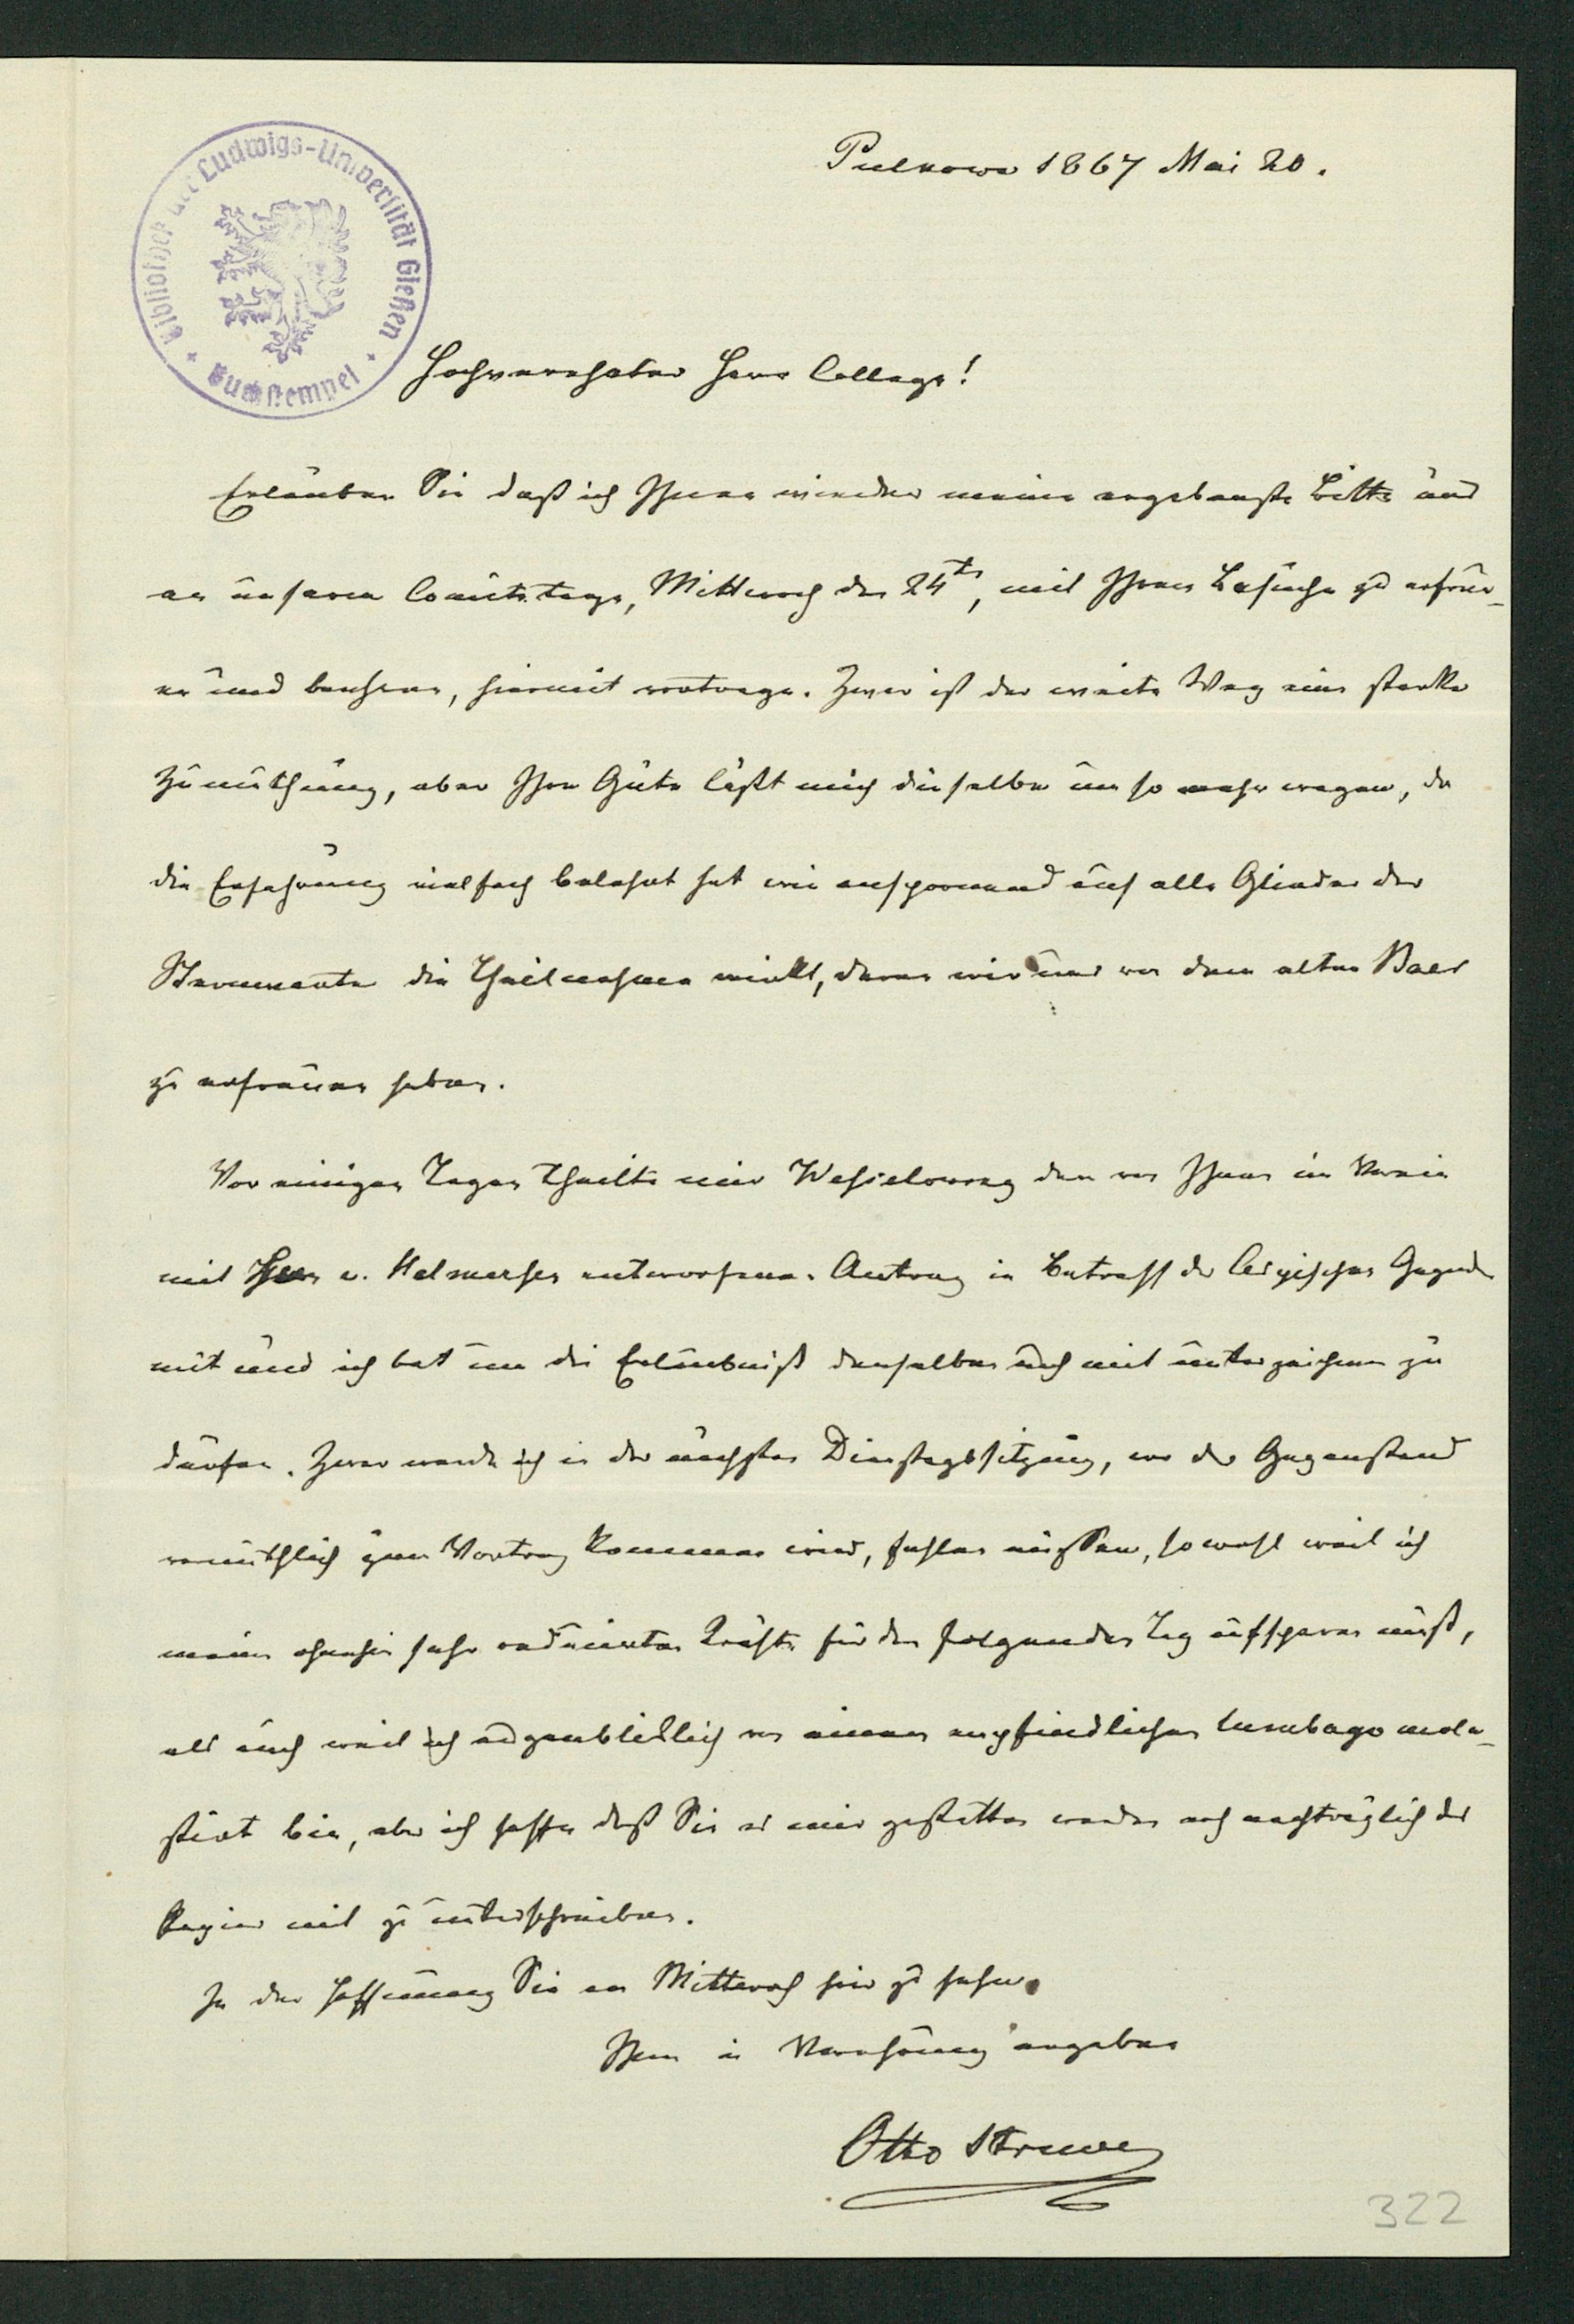 Bibliothek der Ludwigs-Universität Gießen
Buchstempel
Pulkowa 1867 Mai 20.
Hochverehrter Herr College!
Erlauben Sie daß ich Ihnen wieder meine ergebenste Bitte uns
an unserem Comitétage, Mittwoch den 24ten, mit Ihrem Besuche zu erfreu-
en und beehren, hiermit vortrage. Zwar ist der weite Weg eine starke
Zumuthung, aber Ihre Güte läßt mich dieselbe um so mehr wagen, da
die Erfahrung vielfach belehrt hat wie anspornend auf alle Glieder der
Sternwarte die Theilnahme wirkt, deren wir uns von dem alten Baer
zu erfreuen haben.
Vor einigen Tagen theilte mir Wesselowsky den von Ihnen im Verein
mit Herrn v. Helmersen entworfenen Antrag in Betreff der Caspischen Gegenden
mit und ich bat um die Erlaubniß denselben auch mit unterzeichnen zu
dürfen. Zwar werde ich in der nächsten Dienstagssitzung, wo der Gegenstand
vermuthlich zum Vortrag kommen wird, fehlen müssen, sowohl weil ich
meine ohnehin sehr reducirten Kräfte für den folgenden Tag aufsparen muß,
als auch weil ich augenblicklich von einem empfindlichen Lumbago mole-
stirt bin, aber ich hoffe daß Sie es mir gestatten werden noch nachträglich das
Papier mit zu unterschreiben.
In der Hoffnung Sie am Mittwoch hier zu sehen
Ihr in Verehrung ergebener
Otto Struve
322